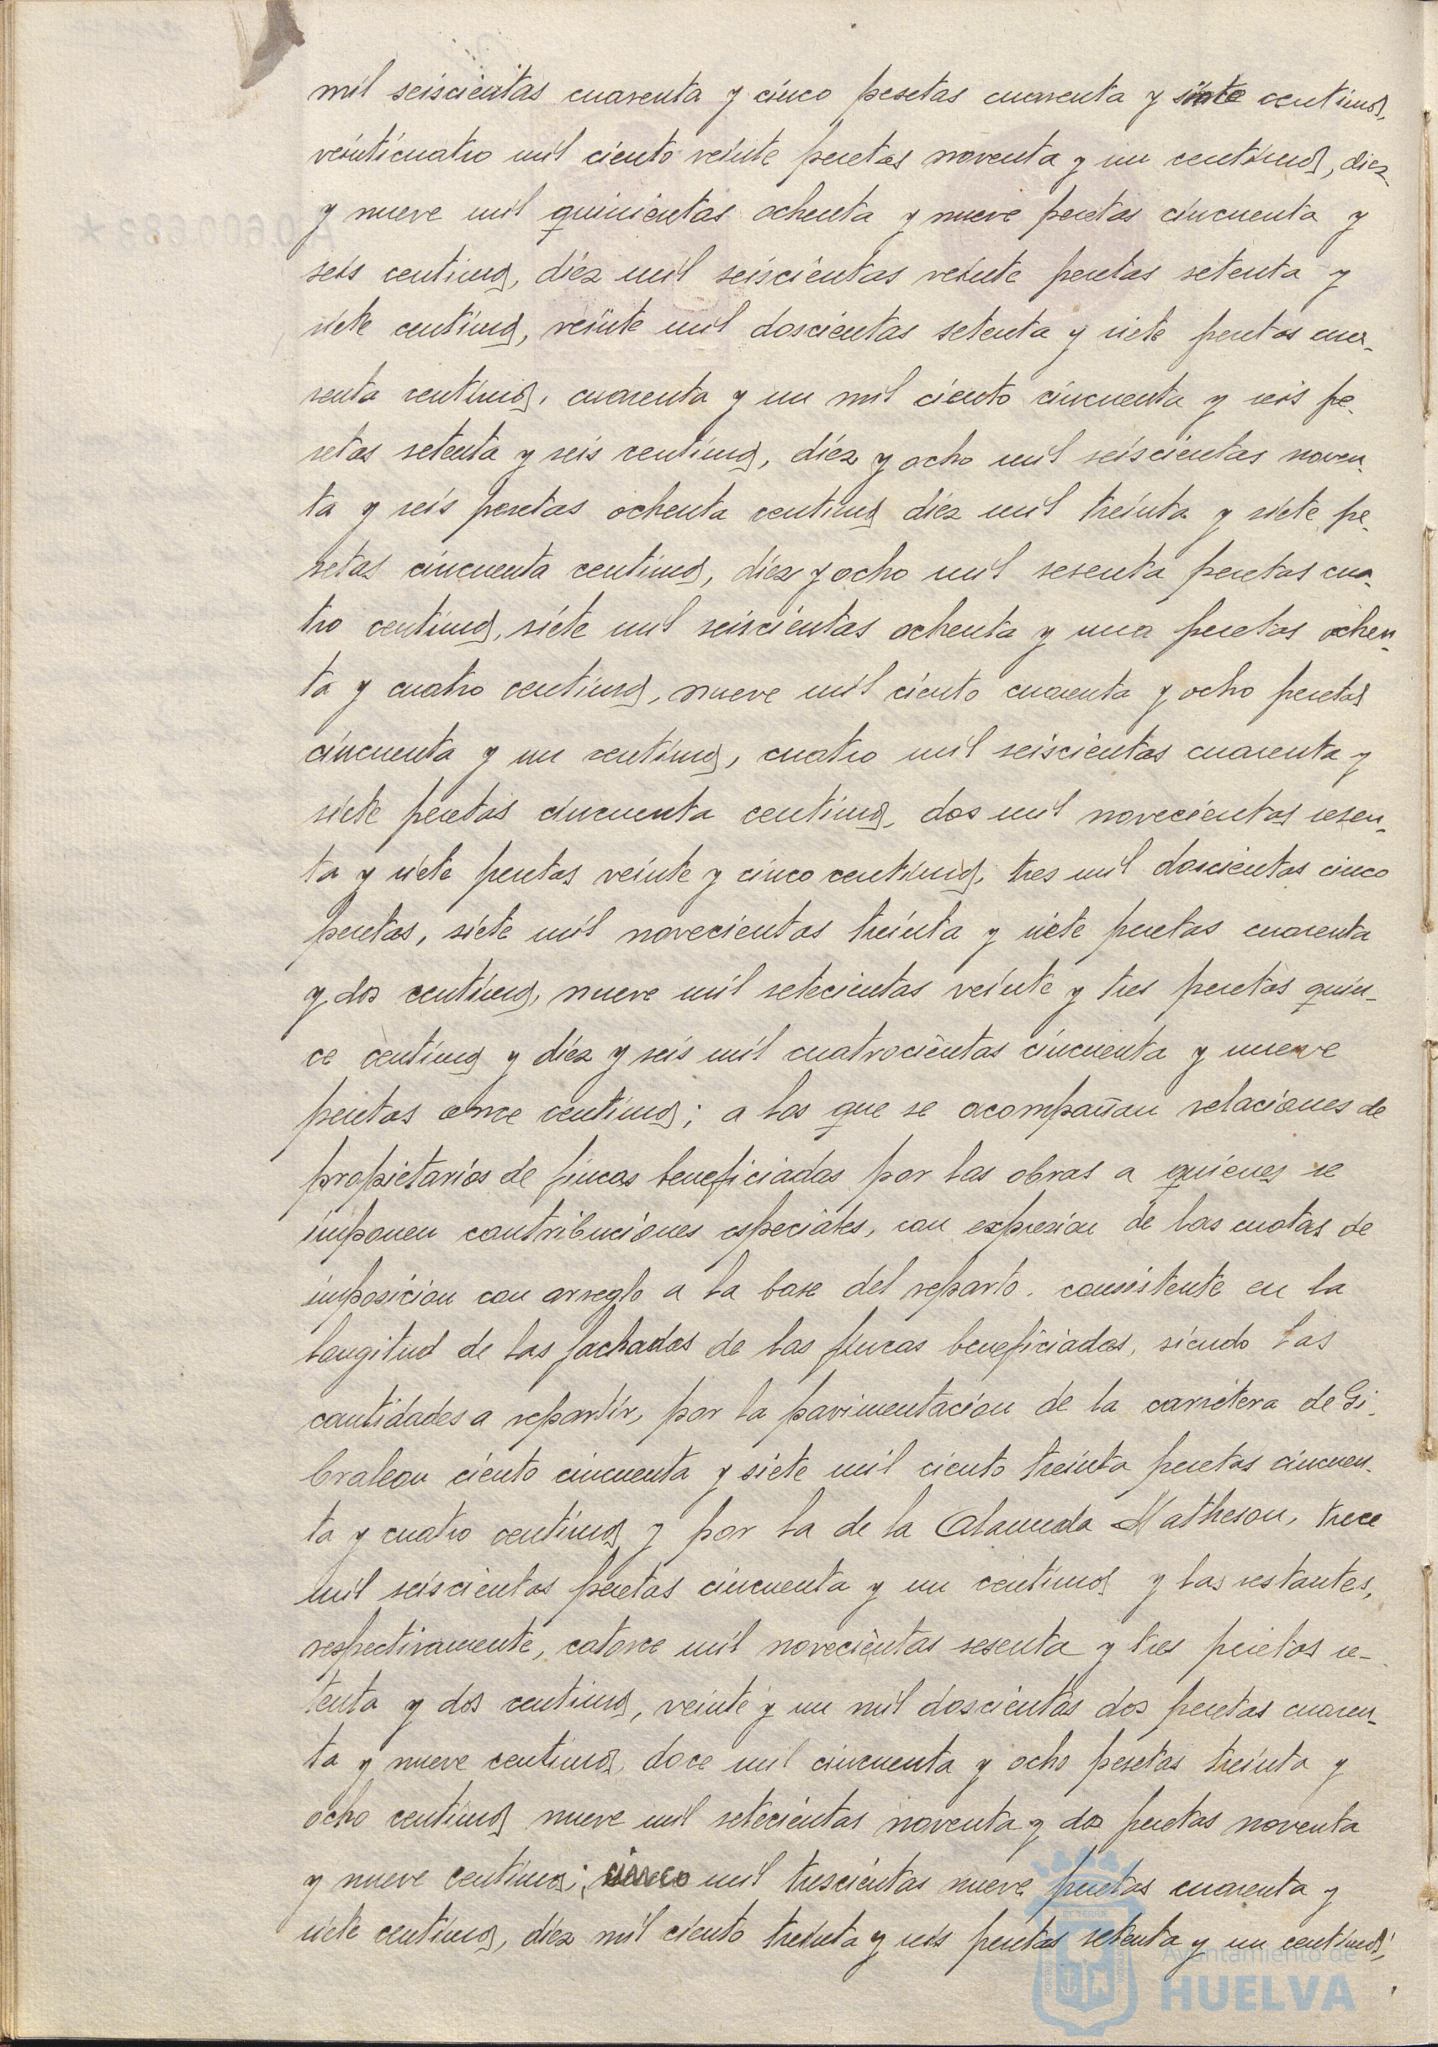 mil seiscientas cuarenta y cinco pesetas cuarenta y siete centimos,
veinticuatro mil ciento veinte pesetas noventa y un centimos, diez
y nueve mil quinientas ochenta y nueve pesetas cincuenta y
seis centimos, diez mil seiscientas veinte pesetas setenta y
siete centimos, veinte mil doscientas setenta y siete pesetas cua-
renta centimos, cuarenta y un mil ciento cincuenta y seis pe-
setas setenta y seis centimos, diez y ocho mil seiscientas noven-
ta y seis pesetas ochenta centimos diez mil treinta y siete pe-
setas cincuenta centimos, diez y ocho mil sesenta pesetas cua-
tro centimos, siete mil seiscientas ochenta y una pesetas ochen-
ta y cuatro centimos, nueve mil ciento cuarenta y ocho pesetas
cincuenta y un centimos, cuatro mil seiscientas cuarenta y
siete pesetas cincuenta centimos, dos mil novecientas sesen-
ta y siete pesetas veinte y cinco centimos, tres mil doscientas cinco
pesetas, siete mil novecientas treinta y siete pesetas cuarenta
y dos centimos, nueve mil setecientas veinte y tres pesetas quin-
ce centimos y diez y seis mil cuatrocientas cincuenta y nueve
pesetas once centimos; a los que se acompañan relaciones de
propietarios de fincas beneficiadas por las obras a quienes se
imponen contribuciones especiales, con expresion de las cuotas de
imposicion con arreglo a la base del reparto, consistente en la
longitud de las fachadas de las fincas beneficiadas, siendo las
cantidades a repartir, por la pavimentacion de la carretera de Gi-
braleon ciento cincuenta y siete mil ciento treinta pesetas cincuen-
ta y cuatro centimos y por la de la Alameda Matheson, trece
mil seiscientas pesetas cincuenta y un centimos y las restantes,
respectivamente, catorce mil novecientas sesenta y tres pesetas se-
tenta y dos centimos, veinte y un mil doscientas dos pesetas cuaren-
ta y nueve centimos, doce mil cincuenta y ocho pesetas treinta y
ocho centimos nueve mil setecientas noventa y dos pesetas noventa
y nueve centimos; cinco mil trescientas nueve pesetas cuarenta y
siete centimos, diez mil ciento treinta y seis pesetas setenta y un centimos,
Ayuntamiento de
HUELVA